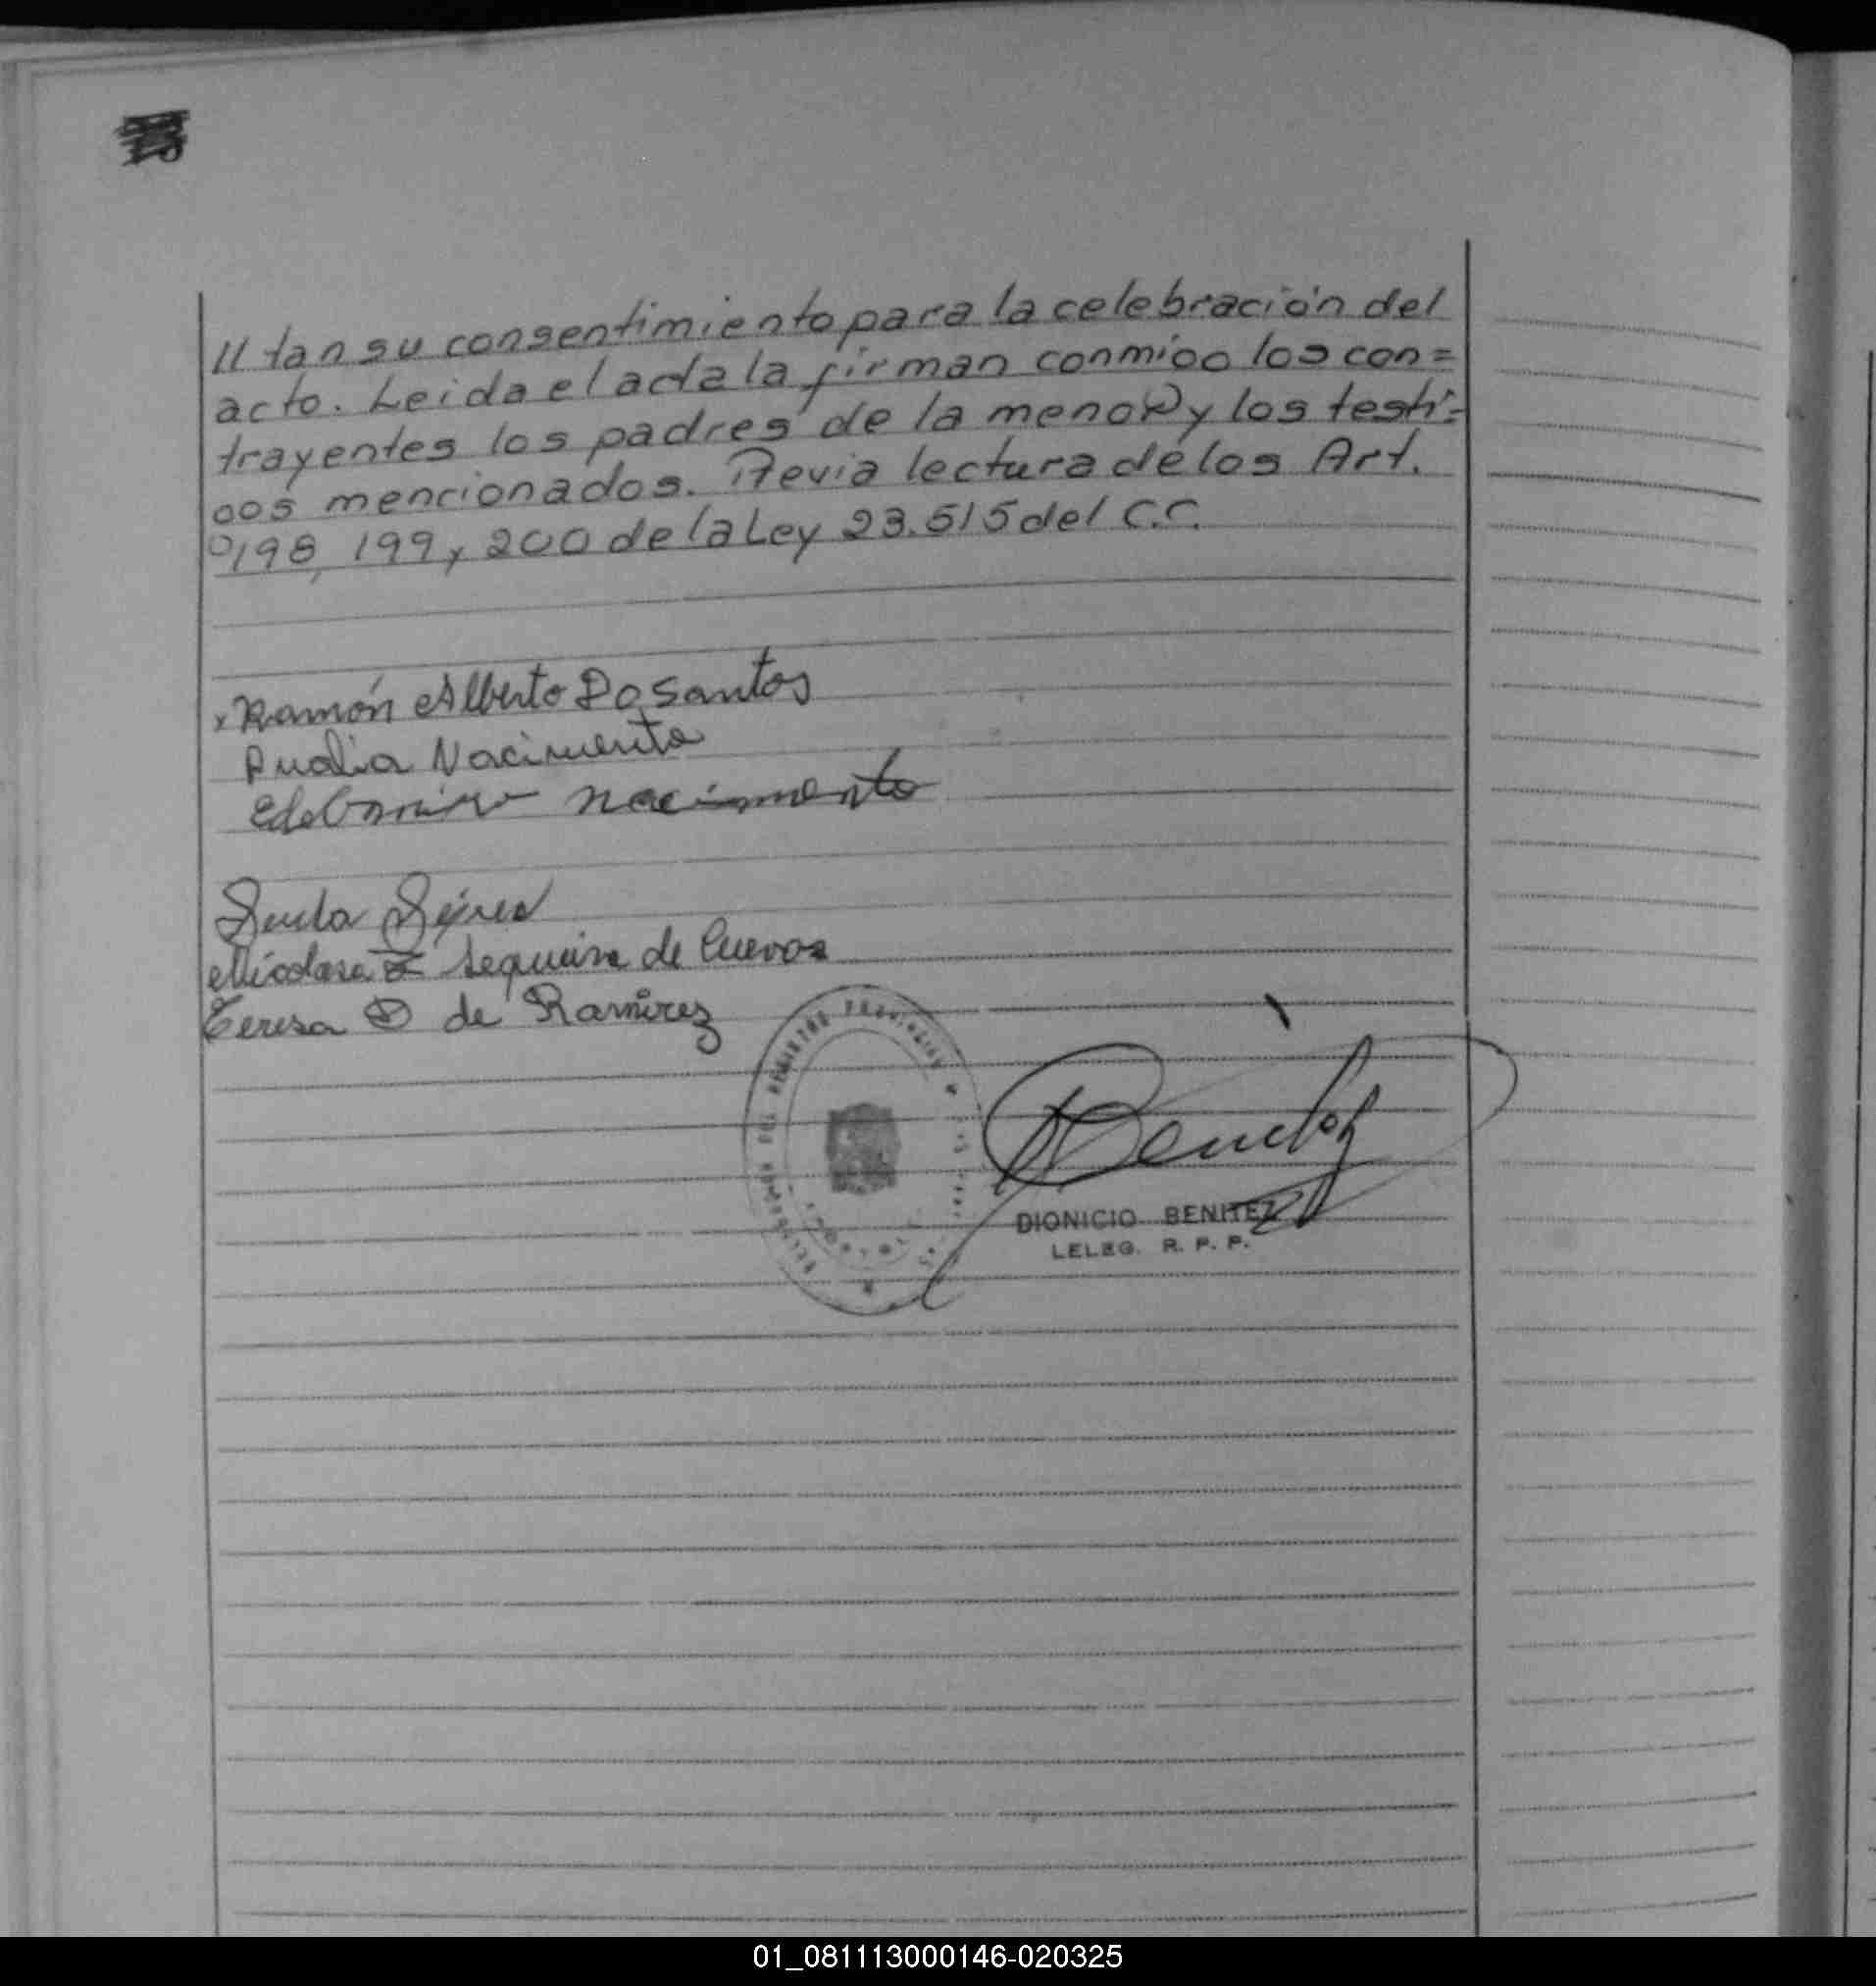 // tan su consentimiento para la celebración del
acto. Leida el acta la firman conmigo los con=
trayentes los padres de la menor y los testi=
gos mencionados. Previa lectura de los Art.
198, 199 y 200 de la Ley 23.515 del C.C.
x Ramón Alberto Do Santos
Nacimento
Nacimento
Sequeira de Cuevas
Teresa D de Ramirez
REGISTRO PROVINCIAL
DIONICIO BENITEZ
LELEG. R. P. P.
01_081113000146-020325